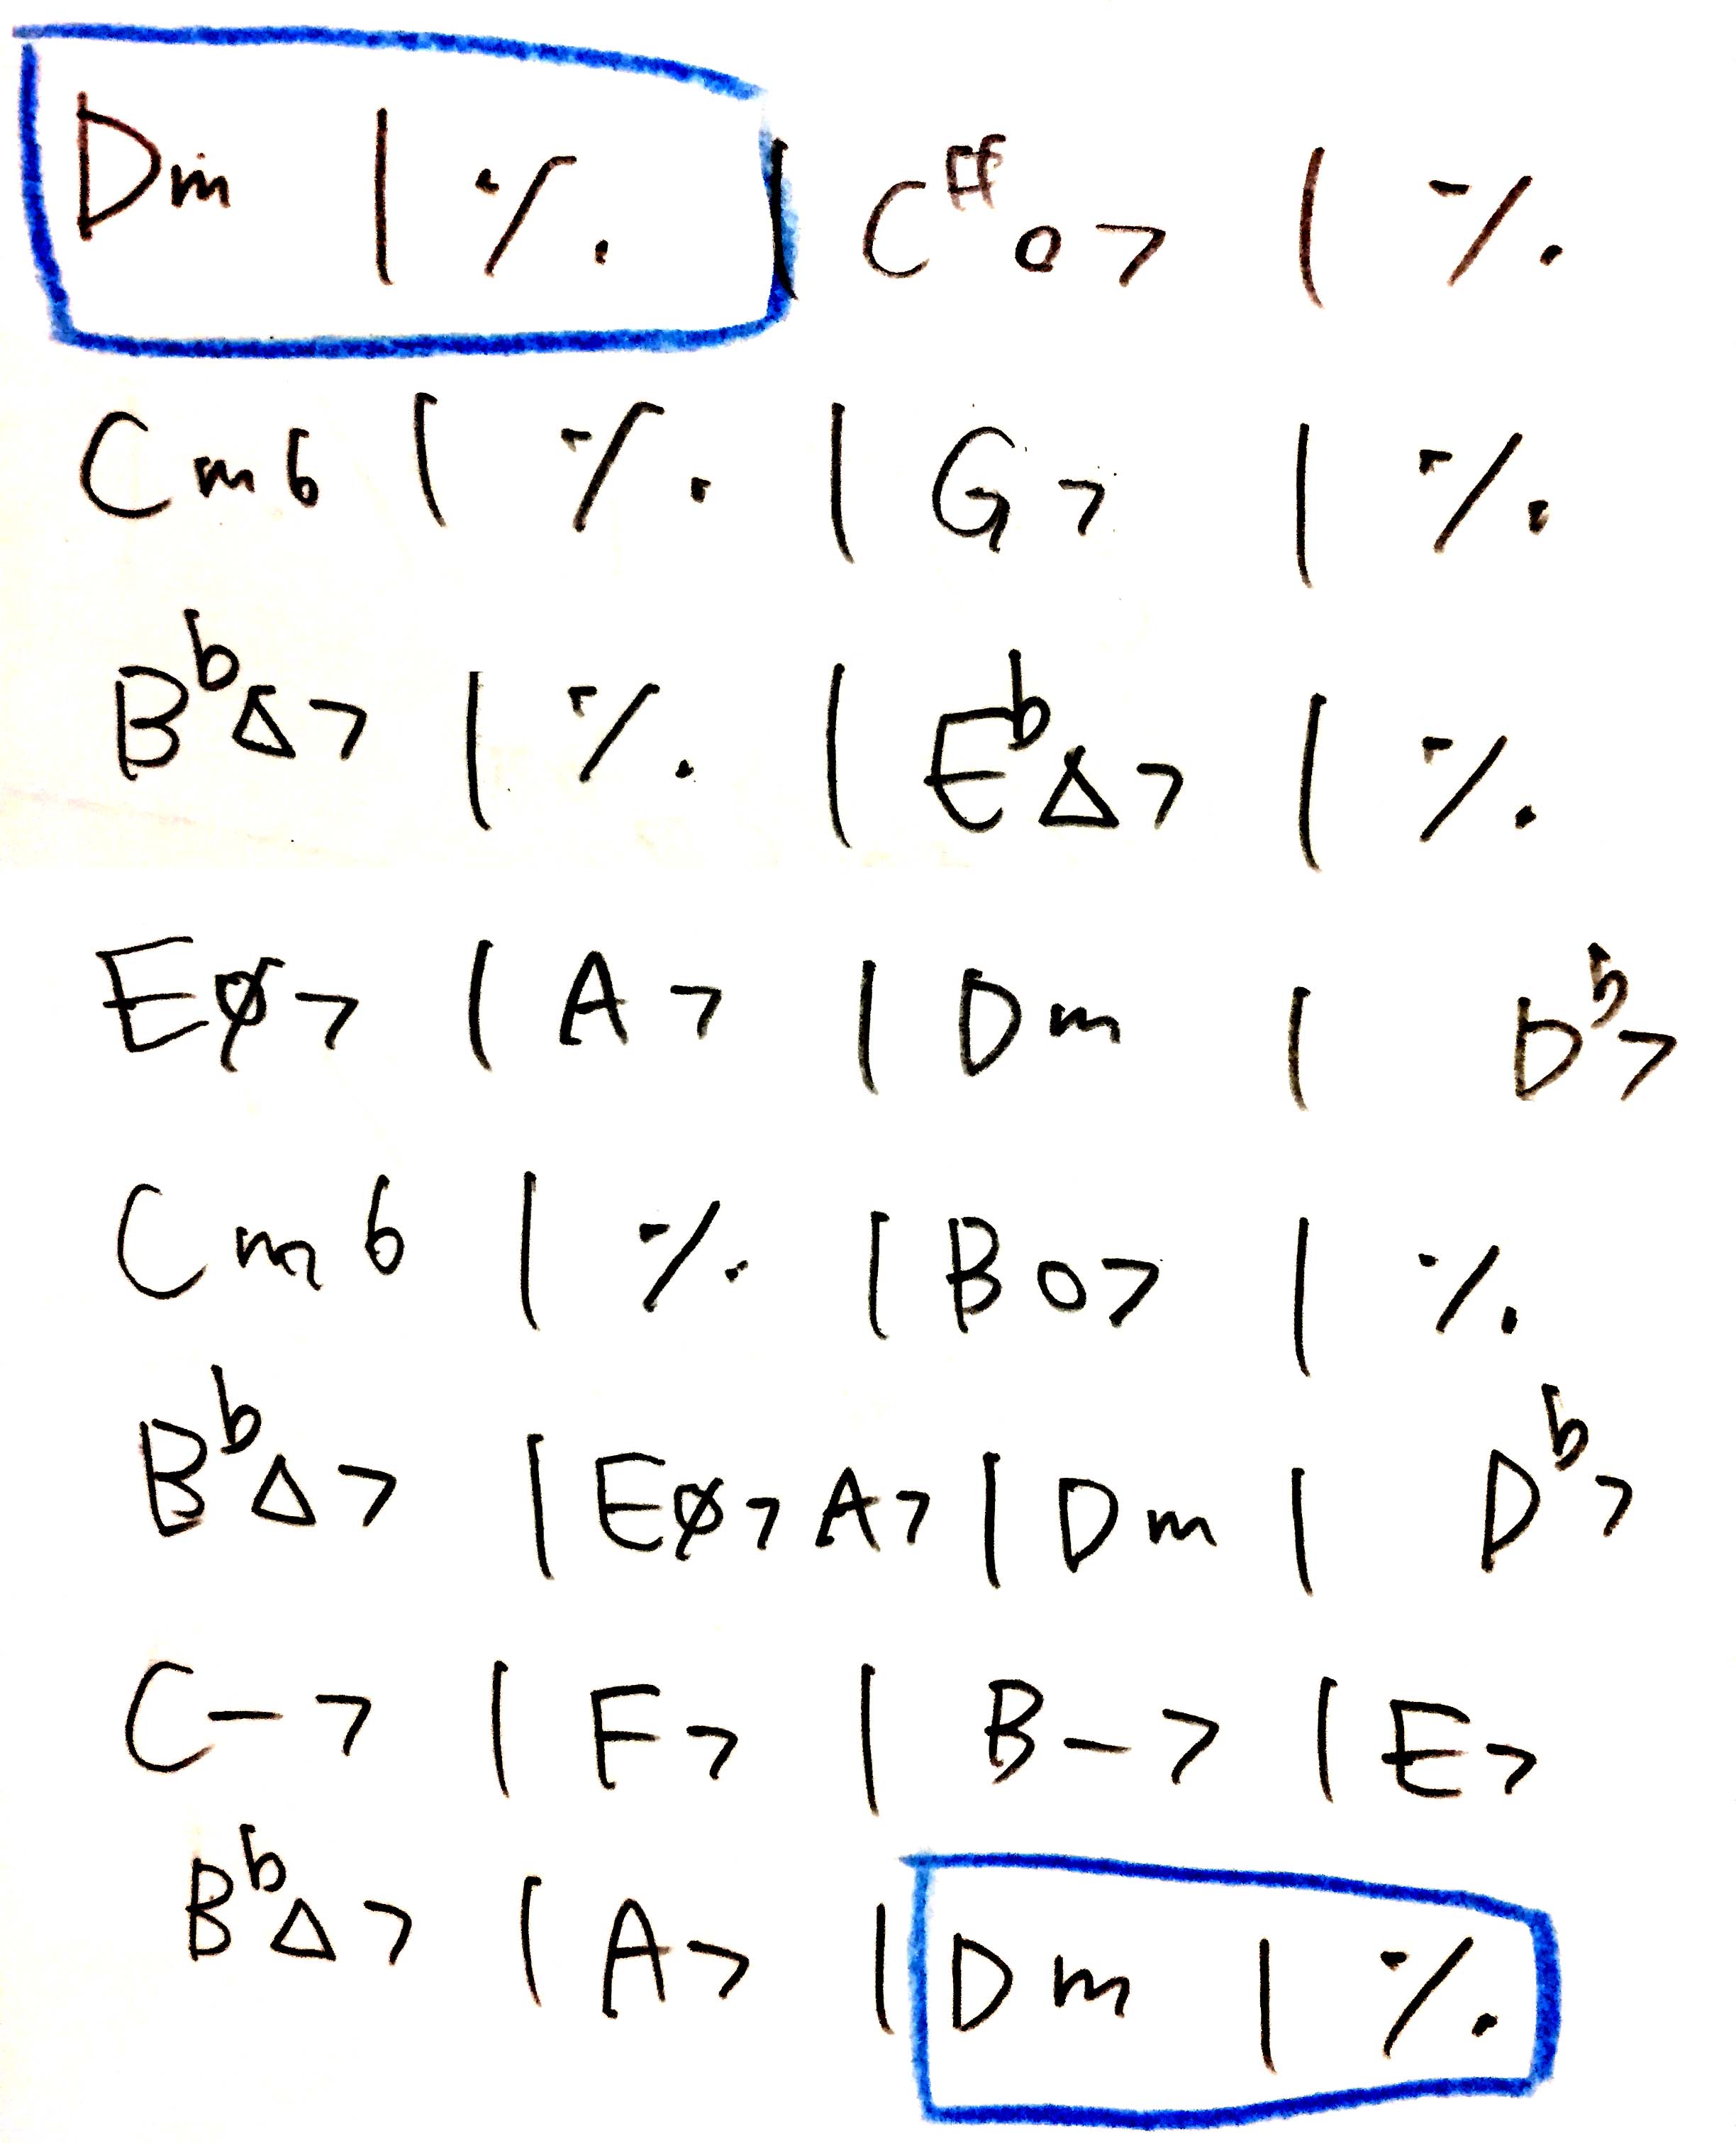 Dm | % | C#o7 | %
Cm6 | % | G7 | %
BbΔ7 | % | EbΔ7 | %
Eø7 | A7 | Dm | Db7
Cm6 | % | Bo7 | %
BbΔ7 | Eø7 A7 | Dm | Db7
C-7 | F7 | B-7 | E7
BbΔ7 | A7 | Dm | %